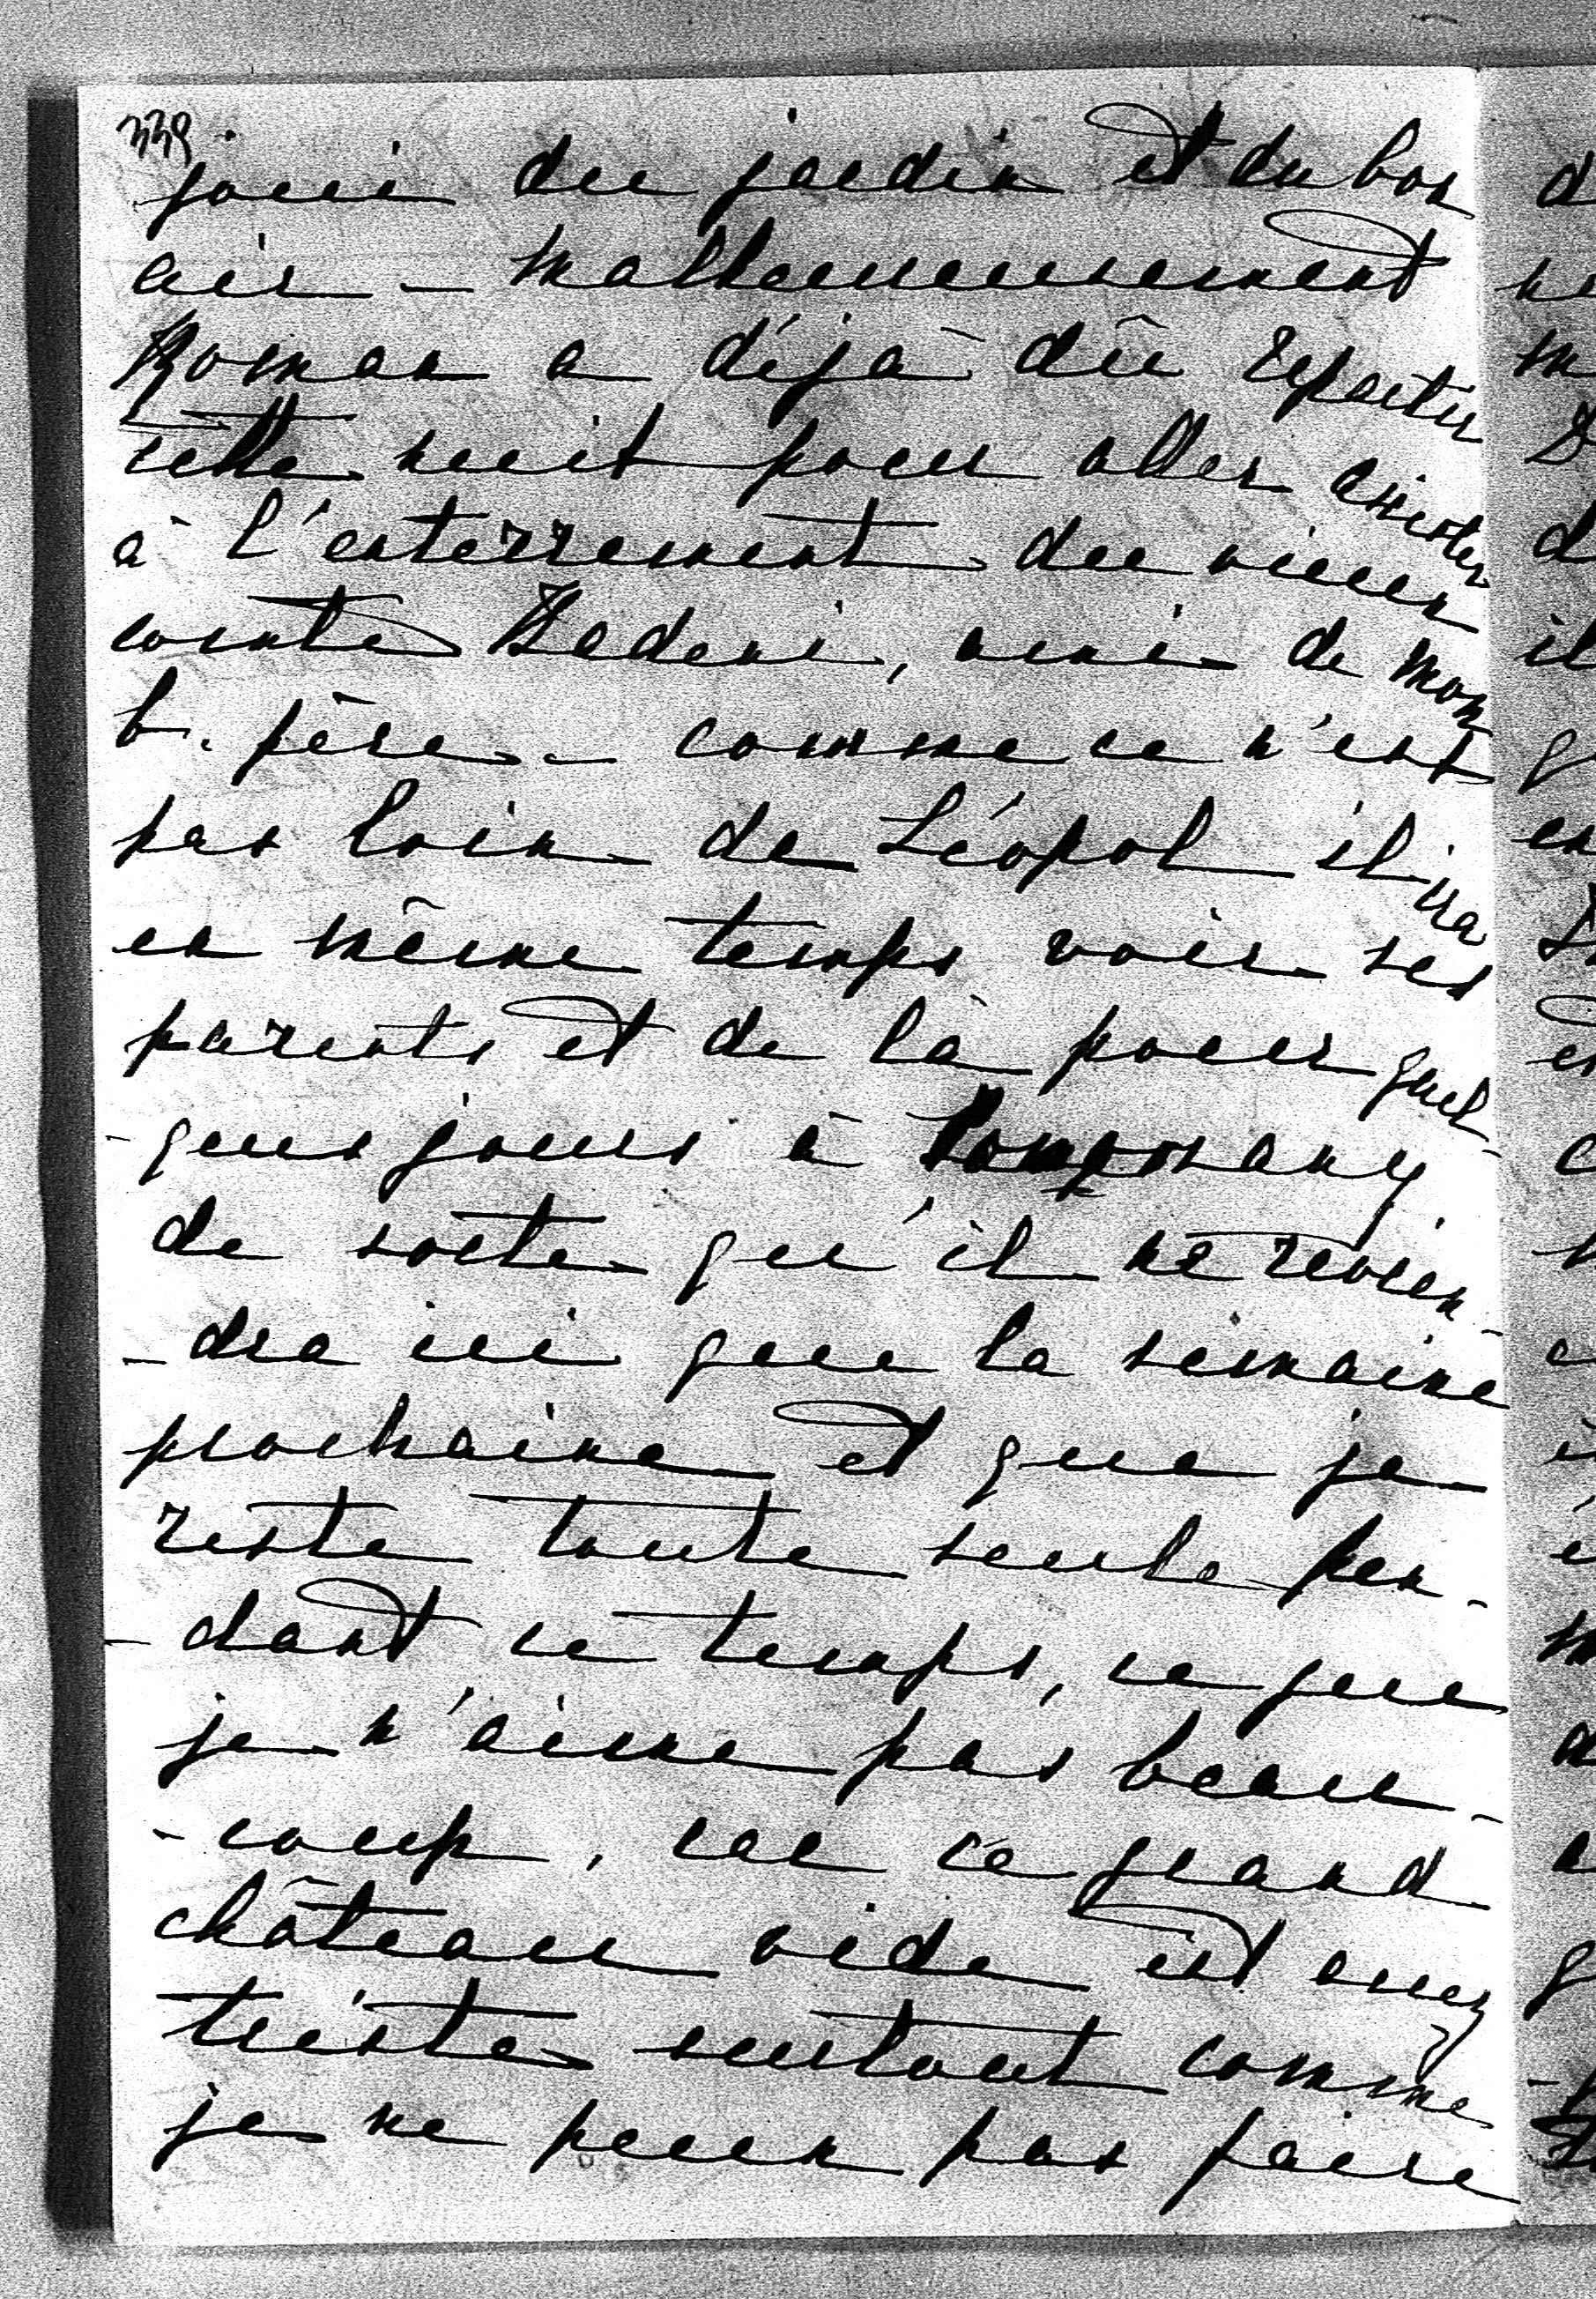 339.
joui du jardin et du bon
air – malheureusement
Roman a déjà dû repartir
cette nuit pour aller assister
à l'enterrement du vieux
comte Badeni, ami de mon
b. père. – comme ce n'est
pas loin de Léopol il ira
en même temps voir ses
parents et de là pour quel-
-ques jours à
de sorte qu'il ne revien-
-dra ici que la semaine
prochaine et que je
reste toute seule pen-
-dant ce temps, ce que
je n'aime pas beau-
-coup, car ce grand
château vide est assez
triste surtout comme
je ne peux pas faire